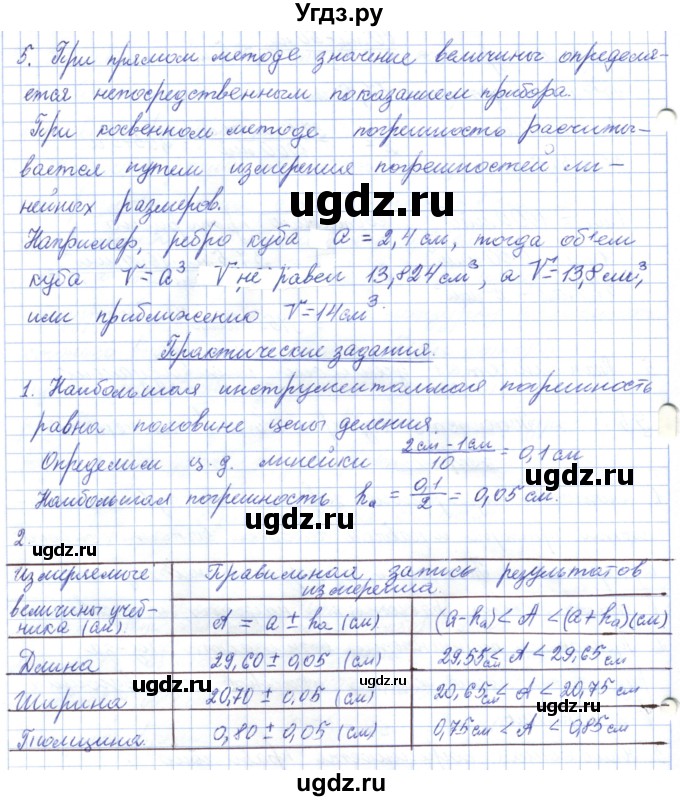 Угдз.ру
5. При прямом методе значение величины определя-
ется непосредственным показанием прибора.
При косвенном методе погрешность расчиты-
вается путем измерения погрешностей ли-
нейных размеров.
ugdz.ru
Например, ребро куба a = 2,4 см, тогда объем
куба V = a³ V не равен 13,824 см³, а V = 13,8 см³,
или приближенно V = 14 см³.
Практические задания.
1. Наибольшая инструментальная погрешность
равна половине цены деления.
ugdz.ru
Определим ц. д. линейки (2 см - 1 см)/10 = 0,1 см
Наибольшая погрешность hₐ = 0,1/2 = 0,05 см.
ugdz.ru
2.
ugdz.ru
Измеряемые величины учеб-ника (см) Правильная запись результатов измерения
A = a ± hₐ (см) (a - hₐ) < A < (a + hₐ) (см)
ugdz.ru ugdz.ru
Длина 29,60 ± 0,05 (см) 29,55 см < A < 29,65 см
ugdz.ru ugdz.ru
Ширина 20,70 ± 0,05 (см) 20,65 см < A < 20,75 см
ugdz.ru
Толщина. 0,80 ± 0,05 (см) 0,75 см < A < 0,85 см
ugdz.ru
ugdz.ru